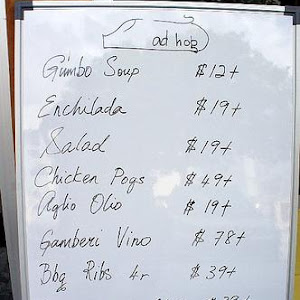 ad hog
Gumbo Soup $12+
Enchilada $19+
Salad $19+
Chicken Pogs $49+
Aglio Olio $19+
Gamberi Vino $78+
Bbq Ribs 4r $39+